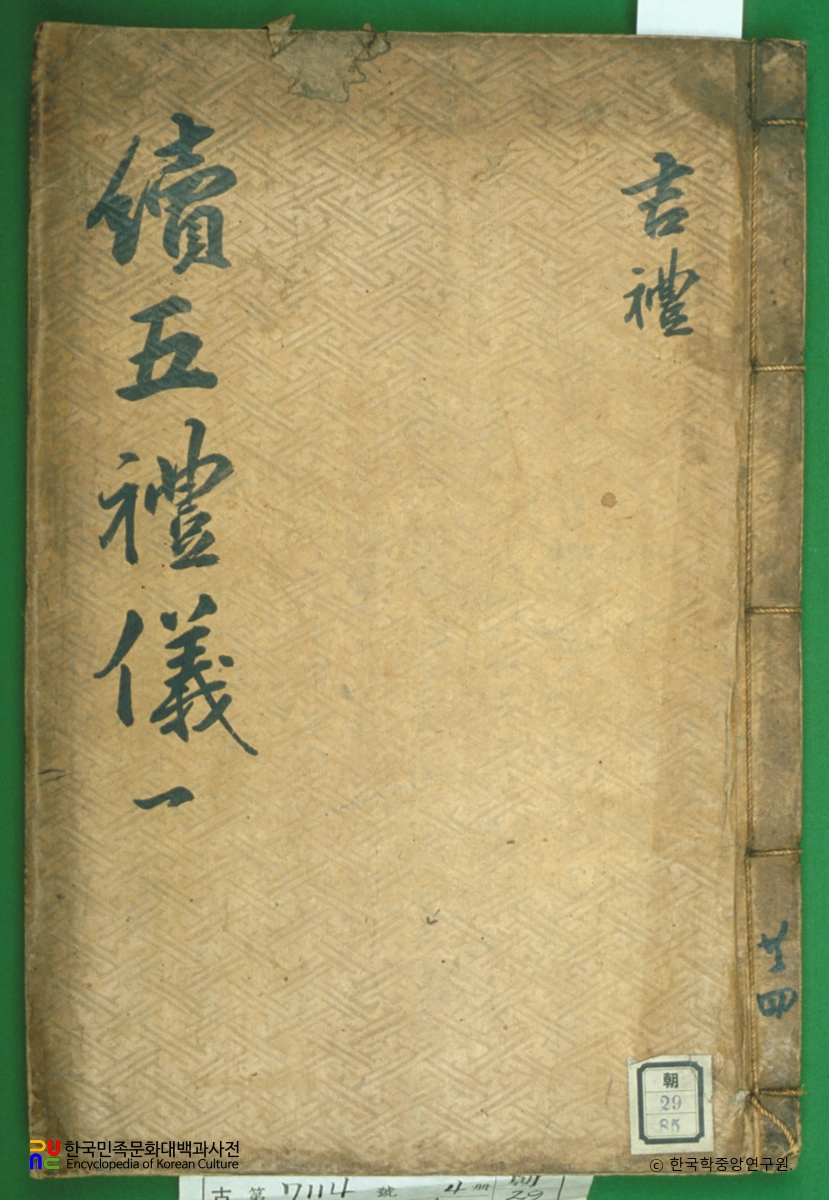 吉禮
續五禮儀 一
共四
朝
29
85
한국민족문화대백과사전
Encyclopedia of Korean Culture
© 한국학중앙연구원
古 第 7114 號 4 冊
29